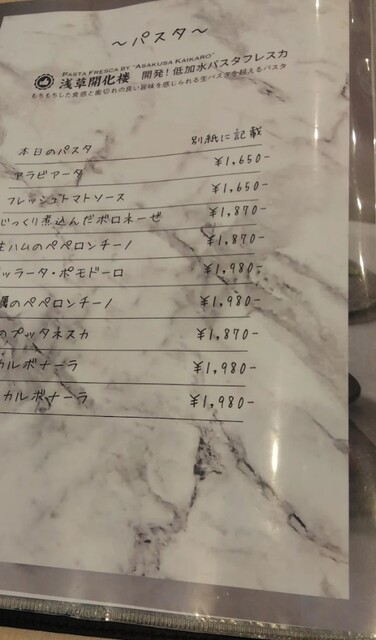 〜パスタ〜
PASTA FRESCA BY "ASAKUSA KAIKARO"
浅草開化楼 開発!低加水パスタフレスカ
もちもちした食感と歯切れの良い旨味を感じられる生パスタを超えるパスタ
本日のパスタ 別紙に記載
アラビアータ ¥1,650-
フレッシュトマトソース ¥1,650-
じっくり煮込んだボロネーゼ ¥1,870-
生ハムのペペロンチーノ ¥1,870-
ッラータ・ポモドーロ ¥1,980-
のペペロンチーノ ¥1,980-
のプッタネスカ ¥1,870-
カルボナーラ ¥1,980-
カルボナーラ ¥1,980-